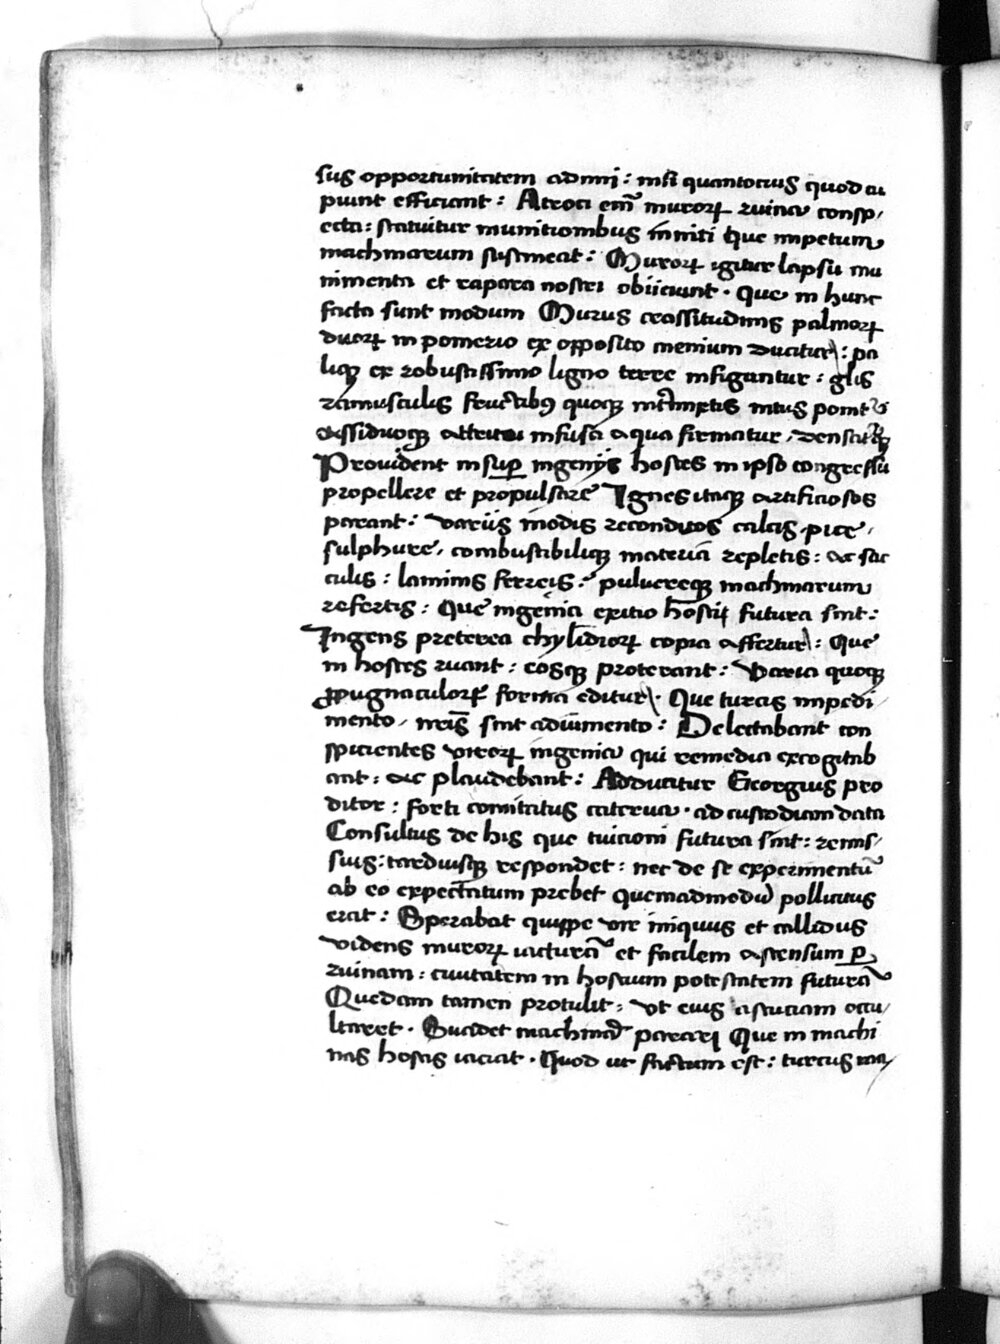 sus opportunitatem admi: nisi quantocius quod cu
piunt efficiant: Atroci em̄ muroꝝ ruina consp,
ecta: statuitur munitionibus inniti que impetum
machinarum sustineat: Muroꝝ igitur lapsui mu
nimenta et rapara nostri obiiciunt. Que in hunc
facta sunt modum Murus crassitudinis palmoꝝ
duoꝝ in pomerio ex opposito menium ducitur: pa
liqꝫ ex robustissimo ligno terre infigantur: glis
ramusculis fructibꝯ quoqꝫ intus
assiduoqꝫ infusa aqua firmatur,
Provident insuꝑ ingeniis hostes in ipso congressu
propellere et propulsare Ignes itaqꝫ artificiosos
parant: variis modis reconditos calcis, pice,
sulphure, combustibiliqꝫ materia repletis: ac sac
culis: laminis ferreis: pulvereqꝫ machinarum
refertis: Que ingenia exitio hostiū futura sint:
Ingens preterea chylidrioꝝ copia affertur: Que
in hostes ruant: eosqꝫ proterant: Varia quoqꝫ
ꝓpugnaculoꝝ forma editur. Que turcis impedi
mento, nr̄is sint adiumento: Delectabant con
spicientes viroꝝ ingenia qui remedia excogitab
ant: ac plaudebant: Adducitur Georgius pro
ditor: forti comitatus caterva. ad custodiam data
Consultus de his que tuicioni futura sint: remis,
sius: tardiusqꝫ respondet: nec de se experimentū
ab eo expectatum prebet quemadmodū pollicitus
erat: Sperabat quippe vir iniquus et callidus
videns muroꝝ iacturā et facilem ascensum ꝑ
ruinam: civitatem in hostium potestatem futurā
Quedam tamen protulit: vt eius astuciam occu
ltaret. Suadet machinā parari Que in machi
nas hostis iaciat. Quod ut factum est: turcus ma